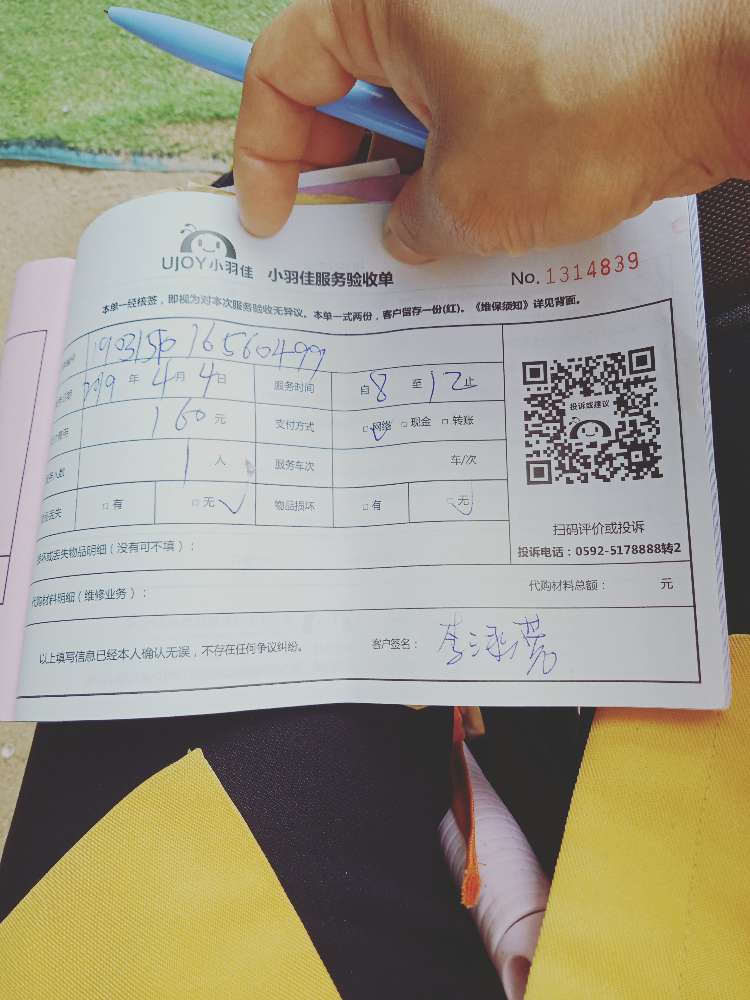 UJOY小羽佳 小羽佳服务验收单 No. 1314839
本单一经核签，即视为对本次服务验收无异议。本单一式两份，客户留存一份(红)。《维保须知》详见背面。
16560499
年 4月4日 服务时间 自 8 至 12 止
160元 支付方式 □网络 □现金 □转账
1人 服务车次 车/次
□有 □无 物品损坏 □有 □无
投诉或建议
扫码评价或投诉
投诉电话：0592-5178888转2
损坏或丢失物品明细（没有可不填）：
代购材料明细（维修业务）： 代购材料总额： 元
以上填写信息已经本人确认无误，不存在任何争议纠纷。 客户签名： 李